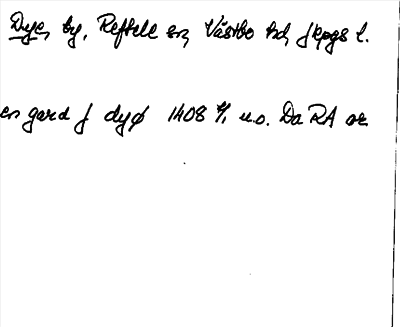 Dye, by, Reftele sn, Västbo hd, Jkpgs l.
en gard j dyø 1408 4/1 u.o. Da RA or